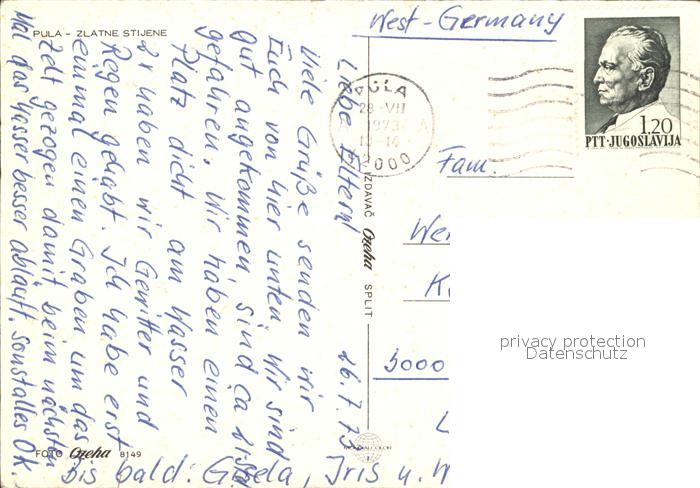 PULA - ZLATNE STIJENE
West-Germany
PULA
28-VII
1973
52000
1.20
PTT·JUGOSLAVIJA
26.7.73
Liebe Eltern!
Viele Grüße senden wir
Euch von hier unten. Wir sind
gut angekommen sind ca
gefahren. Wir haben einen
Platz dicht am Wasser
2x haben wir Gewitter und
Regen gehabt. Ich habe erst
einmal einen Graben um das
Zelt gezogen damit beim nächsten
Mal das Wasser besser abläuft. Sonst alles OK.
Bis bald: Gisela, Iris u.
IZDAVAČ Ozeha SPLIT
Fam.
We
K
3000
L
privacy protection
Datenschutz
FOTO Ozeha 8149